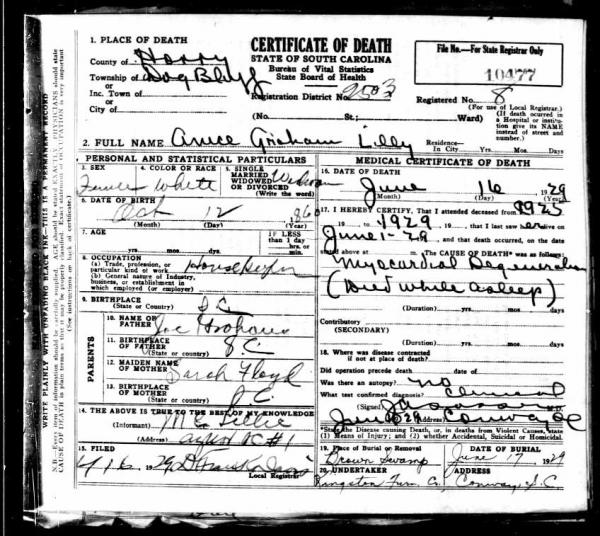 1. PLACE OF DEATH
County of Horry
Township of Dog Bluff
or
Inc. Town of
or
City of
CERTIFICATE OF DEATH
STATE OF SOUTH CAROLINA
Bureau of Vital Statistics
State Board of Health
Registration District No. 2503
(No. St.; Ward)
File No.—For State Registrar Only
10477
Registered No. 8
(For use of Local Registrar.)
(If death occurred in
a Hospital or institu-
tion give its NAME
instead of street and
number.)
2. FULL NAME Graham Lilly
Residence—
In City Yrs. Mos. Days
PERSONAL AND STATISTICAL PARTICULARS
3. SEX
4. COLOR OR RACE White
5. SINGLE
MARRIED
WIDOWED
OR DIVORCED
(Write the word)
6. DATE OF BIRTH
Oct 12 1860
(Month) (Day) (Year)
7. AGE
yrs. mos. days
IF LESS
than 1 day
hrs. or
min.
8. OCCUPATION
(a) Trade, profession, or
particular kind of work Housekeeper
(b) General nature of Industry,
business, or establishment in
which employed (or employer)
9. BIRTHPLACE S C
(State or Country)
PARENTS
10. NAME OF
FATHER Joe
11. BIRTHPLACE
OF FATHER S.C.
(State or country)
12. MAIDEN NAME
OF MOTHER Sarah Floyd
13. BIRTHPLACE
OF MOTHER S.C.
(State or country)
14. THE ABOVE IS TRUE TO THE BEST OF MY KNOWLEDGE
(Informant)
(Address) #1
15. FILED
1929
Local Registrar
MEDICAL CERTIFICATE OF DEATH
16. DATE OF DEATH
June 16 1929
(Month) (Day) (Year)
17. I HEREBY CERTIFY, That I attended deceased from 1925
19 to 1929 19 , that I last saw her alive on
June 1-29, and that death occurred, on the date
stated above at m. The CAUSE OF DEATH* was as follows:
Myocardial Degeneration
(Died while asleep)
(Duration) yrs. mos. days
Contributory
(SECONDARY)
(Duration) yrs. mos. days
18. Where was disease contracted
if not at place of death?
Did operation precede death date
Was there an autopsy? no
What test confirmed diagnosis? Clinical
(Signed) M.D.
(Address) Conway SC
*State the Disease causing Death, or, in deaths from Violent Causes, state
(1) Means of Injury; and (2) whether Accidental, Suicidal or Homicidal.
19. Place of Burial or Removal
Brown Swamp
DATE OF BURIAL
June 17 1929
20. UNDERTAKER
Kingston Furn. Co.
ADDRESS
Conway, S.C.
WRITE PLAINLY WITH UNFADING BLACK INK—THIS IS A PERMANENT RECORD